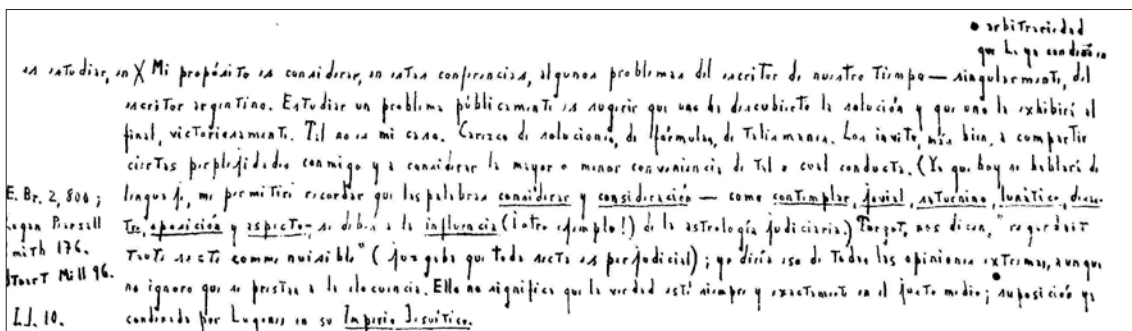 • arbitrariedad
que L. ya condenó en
es estudiar, en X Mi propósito es considerar, en estas conferencias, algunos problemas del escritor de nuestro tiempo — singularmente, del
escritor argentino. Estudiar un problema públicamente es sugerir que uno ha descubierto la solución y que uno la exhibirá al
final, victoriosamente. Tal no es mi caso. Carezco de soluciones, de fórmulas, de talismanes. Los invito, más bien, a compartir
ciertas perplejidades conmigo y a considerar la mayor o menor conveniencia de tal o cual conducta. (Ya que hoy se hablará de
E. Br. 2, 800; lenguaje, me permitiré recordar que las palabras considerar y consideración — como contemplar, jovial, saturnino, lunático, desas-
Logan Pearsall tre, oposición y aspecto, se deben a la influencia (¡otro ejemplo!) de la astrología judiciaria.) Turgot, nos dicen, "regardait
Smith 176. toute secte comme nuisible" (juzgaba que toda secta es perjudicial); yo diría eso de todas las opiniones extremas, aunque
Stuart Mill 96. no ignoro que se prestan a la elocuencia. Ello no significa que la verdad esté siempre y exactamente en el justo medio; • suposición ya
L.I. 10. condenada por Lugones en su Imperio Jesuítico.